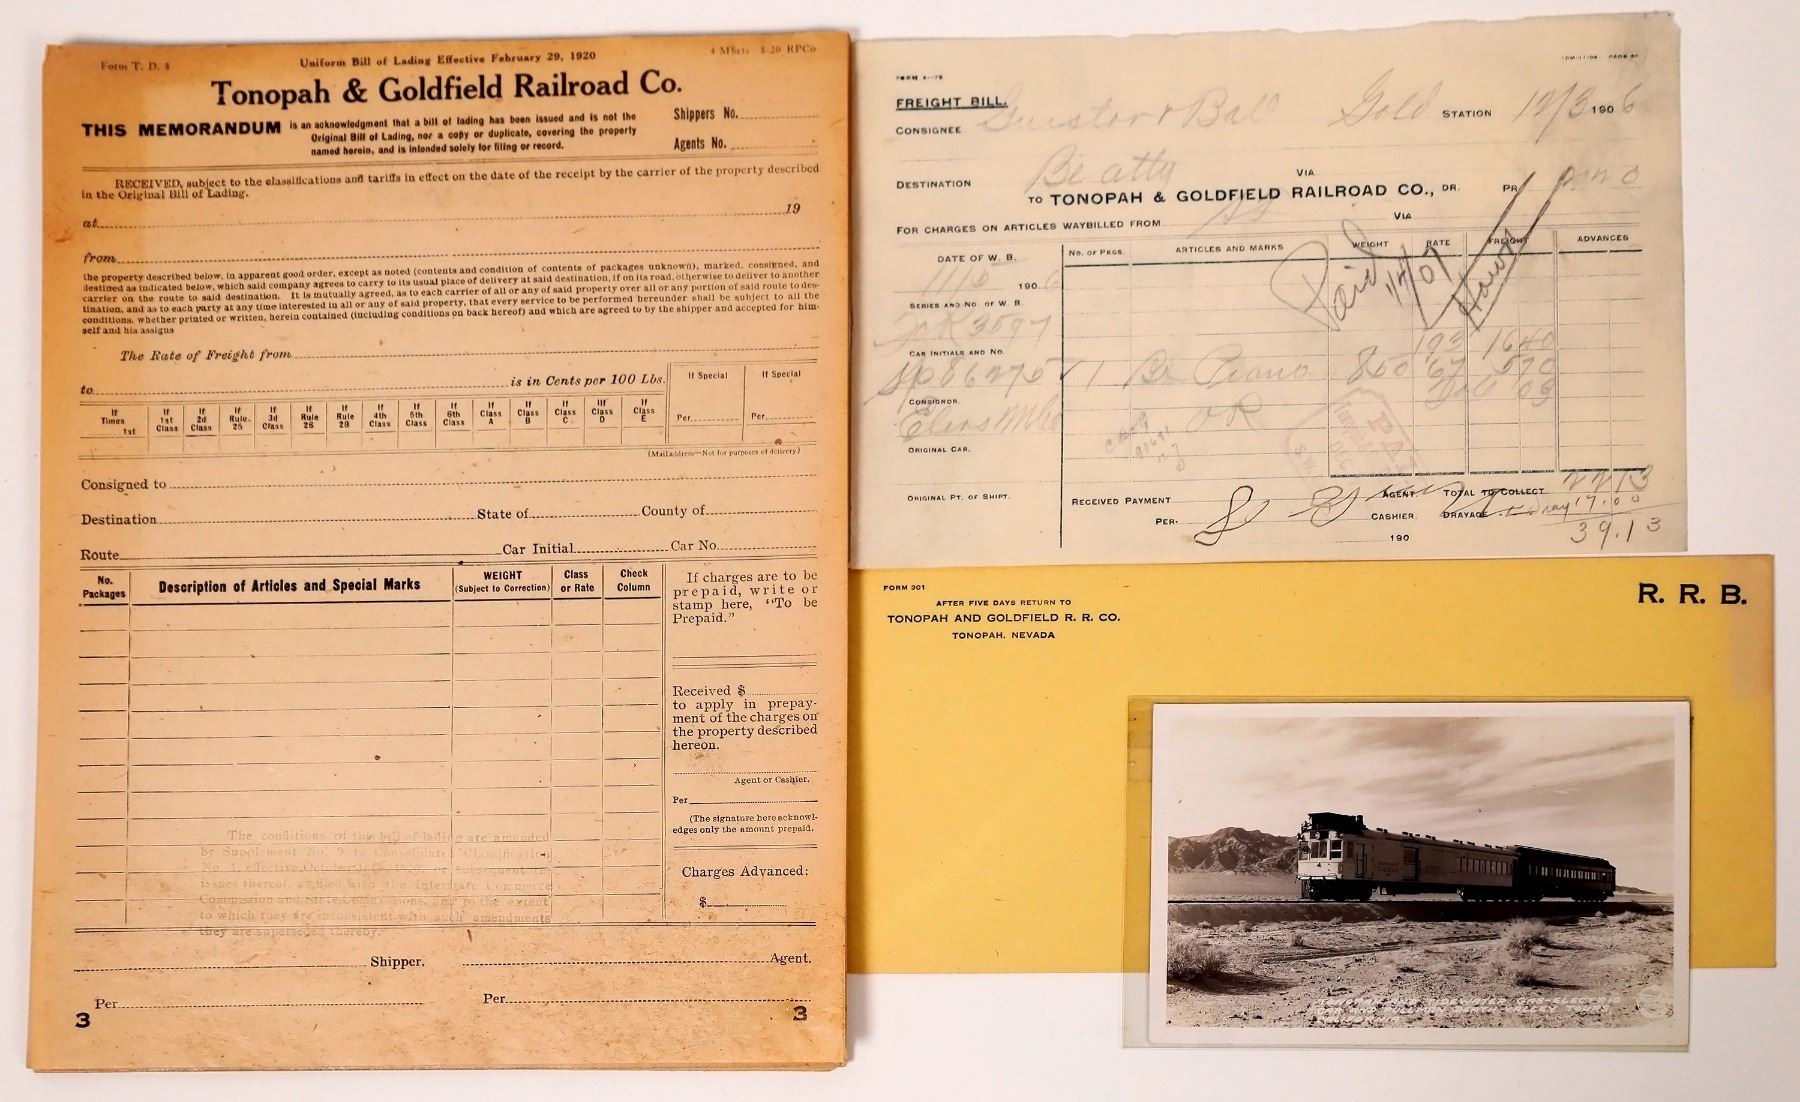 Form T. D. 8
Uniform Bill of Lading Effective February 29, 1920
4 MSets 8-20 RPCo
Tonopah & Goldfield Railroad Co.
THIS MEMORANDUM is an acknowledgment that a bill of lading has been issued and is not the
Original Bill of Lading, nor a copy or duplicate, covering the property
named herein, and is intended solely for filing or record.
Shippers No.
Agents No.
RECEIVED, subject to the classifications and tariffs in effect on the date of the receipt by the carrier of the property described
in the Original Bill of Lading.
at 19
from
the property described below, in apparent good order, except as noted (contents and condition of contents of packages unknown), marked, consigned, and
destined as indicated below, which said company agrees to carry to its usual place of delivery at said destination, if on its road, otherwise to deliver to another
carrier on the route to said destination. It is mutually agreed, as to each carrier of all or any of said property over all or any portion of said route to des-
tination, and as to each party at any time interested in all or any of said property, that every service to be performed hereunder shall be subject to all the
conditions, whether printed or written, herein contained (including conditions on back hereof) and which are agreed to by the shipper and accepted for him-
self and his assigns
The Rate of Freight from
to is in Cents per 100 Lbs.
If Special
If Special
Per
Per
If Times 1st
If 1st Class
If 2d Class
If Rule 25
If 3d Class
If Rule 26
If Rule 28
If 4th Class
If 5th Class
If 6th Class
If Class A
If Class B
If Class C
If Class D
If Class E
(Mail address—Not for purposes of delivery)
Consigned to
Destination State of County of
Route Car Initial Car No.
No. Packages
Description of Articles and Special Marks
WEIGHT (Subject to Correction)
Class or Rate
Check Column
If charges are to be
prepaid, write or
stamp here, "To be
Prepaid."
Received $
to apply in prepay-
ment of the charges on
the property described
hereon.
Agent or Cashier.
Per
(The signature here acknowl-
edges only the amount prepaid.
Charges Advanced:
$
The conditions of this bill of lading are amended
by Supplement No. 9 to Consolidated Classification
issues thereof, as filed with the Interstate Commerce
Commission and State Commissions, and to the extent
to which they are inconsistent with such amendments
they are superseded thereby.
Shipper. Agent.
Per Per
3 3
FORM A--78
FREIGHT BILL.
CONSIGNEE Ball Gold STATION 12/3 1906
DESTINATION Beatty VIA
TO TONOPAH & GOLDFIELD RAILROAD CO., DR. PR
FOR CHARGES ON ARTICLES WAYBILLED FROM VIA
DATE OF W. B.
No. OF PKGS.
ARTICLES AND MARKS
WEIGHT
RATE
FREIGHT
ADVANCES
11/5 1906
Paid
SERIES AND NO. OF W. B.
3597
CAR INITIALS AND NO.
193 1640
SP 86276 1 Bx Piano 850 67 570
CONSIGNOR.
03
OR
ORIGINAL CAR.
PAID
ORIGINAL PT. OF SHIPT.
RECEIVED PAYMENT AGENT. TOTAL TO COLLECT 2213
PER. CASHIER. DRAYAGE Dray 17.00
190
39.13
FORM 301
R. R. B.
AFTER FIVE DAYS RETURN TO
TONOPAH AND GOLDFIELD R. R. CO.
TONOPAH, NEVADA
TONOPAH AND TIDEWATER GAS-ELECTRIC
CAR AND PULLMAN DEATH VALLEY